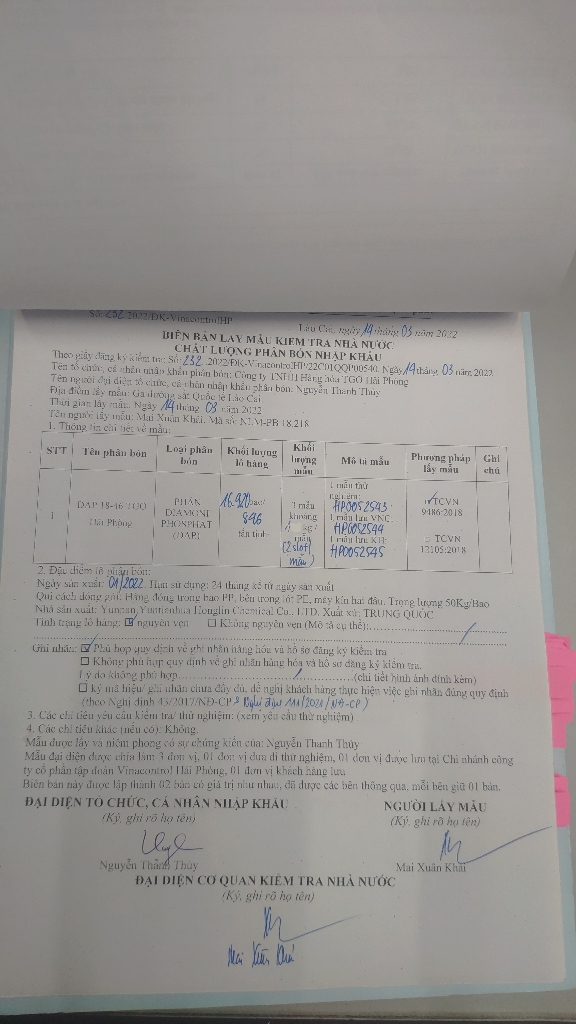 Số: 232 2022/ĐK-VinacontrolHP
Lào Cai, ngày 14 tháng 03 năm 2022
BIÊN BẢN LẤY MẪU KIỂM TRA NHÀ NƯỚC
CHẤT LƯỢNG PHÂN BÓN NHẬP KHẨU
Theo giấy đăng ký kiểm tra: Số: 232 2022/ĐK-VinacontrolHP/22C01QQP00540. Ngày 14 tháng 03 năm 2022
Tên tổ chức, cá nhân nhập khẩu phân bón: Công ty TNHH Hàng hóa TGO Hải Phòng
Tên người đại diện tổ chức, cá nhân nhập khẩu phân bón: Nguyễn Thanh Thủy
Địa điểm lấy mẫu: Ga đường sắt Quốc tế Lào Cai
Thời gian lấy mẫu. Ngày 14 tháng 03 năm 2022
Tên người lấy mẫu: Mai Xuân Khải. Mã số: NLM-PB 18.218
1. Thông tin chi tiết về mẫu:
STT Tên phân bón Loại phân bón Khối lượng lô hàng Khối lượng mẫu Mô tả mẫu Phương pháp lấy mẫu Ghi chú
1 DAP 18-46 TGO Hải Phòng PHÂN DIAMONI PHOSPHAT (DAP) 16.920 bao/ 846 tấn tịnh 1 mẫu khoảng kg/ mẫu 1 mẫu thử nghiệm: HP0052543 1 mẫu lưu VNC: HP0052544 1 mẫu lưu KH: HP0052545 TCVN 9486:2018 TCVN 12105:2018
2. Đặc điểm lô phân bón:
Ngày sản xuất: 01/2022. Hạn sử dụng: 24 tháng kể từ ngày sản xuất
Qui cách đóng gói: Hàng đóng trong bao PP, bên trong lót PE, máy kín hai đầu. Trọng lượng 50Kg/Bao
Nhà sản xuất: Yunnan Yuntianhua Honglin Chemical Co., LTD. Xuất xứ: TRUNG QUỐC
Tình trạng lô hàng: ☑ nguyên vẹn ☐ Không nguyên vẹn (Mô tả cụ thể):
Ghi nhãn: ☑ Phù hợp quy định về ghi nhãn hàng hóa và hồ sơ đăng ký kiểm tra
☐ Không phù hợp quy định về ghi nhãn hàng hóa và hồ sơ đăng ký kiểm tra.
Lý do không phù hợp (chi tiết hình ảnh đính kèm)
☐ ký mã hiệu/ ghi nhãn chưa đầy đủ, đề nghị khách hàng thực hiện việc ghi nhãn đúng quy định
(theo Nghị định 43/2017/NĐ-CP & Nghị định 111/2021/NĐ-CP)
3. Các chỉ tiêu yêu cầu kiểm tra/ thử nghiệm: (xem yêu cầu thử nghiệm)
4. Các chỉ tiêu khác (nếu có): Không.
Mẫu được lấy và niêm phong có sự chứng kiến của: Nguyễn Thanh Thủy
Mẫu đại diện được chia làm 3 đơn vị, 01 đơn vị đưa đi thử nghiệm, 01 đơn vị được lưu tại Chi nhánh công
ty cổ phần tập đoàn Vinacontrol Hải Phòng, 01 đơn vị khách hàng lưu
Biên bản này được lập thành 02 bản có giá trị như nhau, đã được các bên thông qua, mỗi bên giữ 01 bản.
ĐẠI DIỆN TỔ CHỨC, CÁ NHÂN NHẬP KHẨU NGƯỜI LẤY MẪU
(Ký, ghi rõ họ tên) (Ký, ghi rõ họ tên)
Nguyễn Thanh Thủy Mai Xuân Khải
ĐẠI DIỆN CƠ QUAN KIỂM TRA NHÀ NƯỚC
(Ký, ghi rõ họ tên)
Mai Xuân Khải